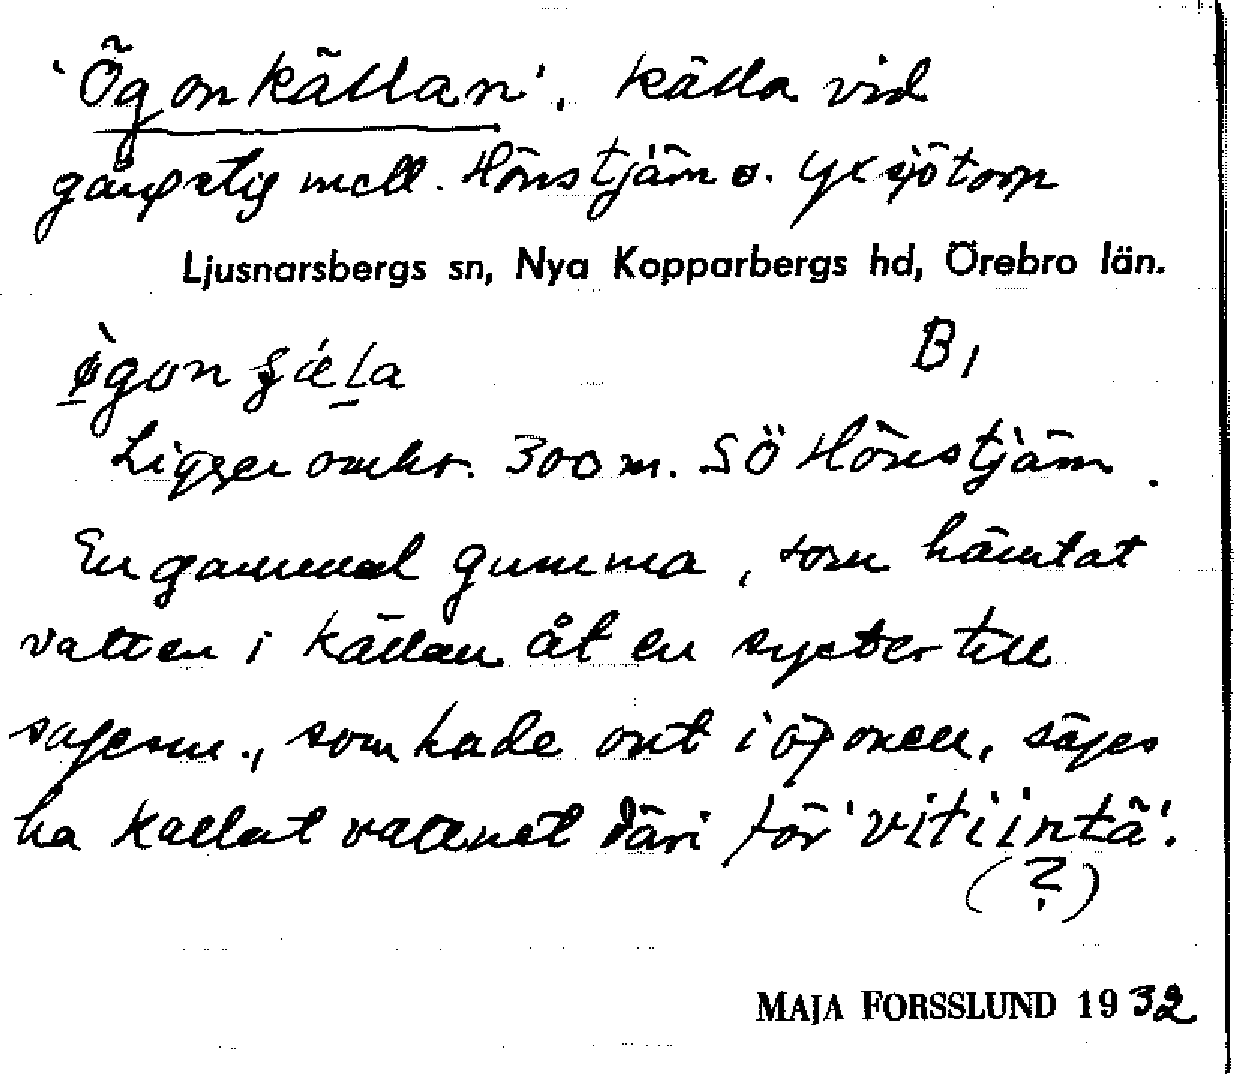 'Ögonkällan', källa vid
gångstig mell. Hönstjärn o. Yxsjötorp
Ljusnarsbergs sn, Nya Kopparbergs hd, Örebro län.
B1
Ligger omkr. 300 m. SÖ Hönstjärn.
En gammal gumma, som hämtat
vatten i källan åt en syster till
sagesm., som hade ont i ögonen, säges
ha kallat vattnet däri för 'vitiintä'.
(?)
MAJA FORSSLUND 1932